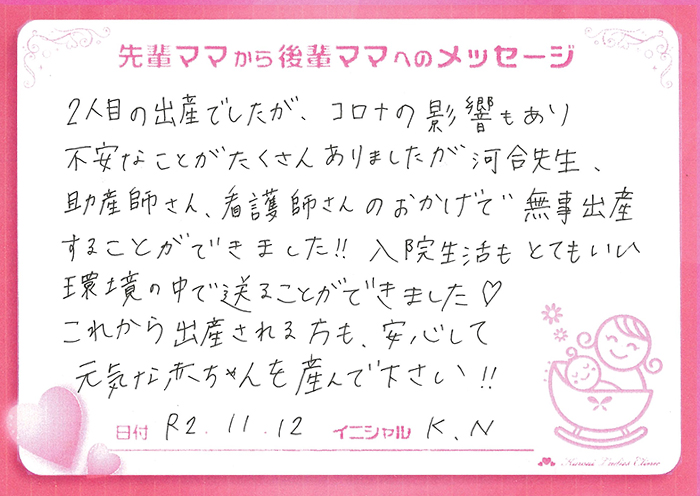 先輩ママから後輩ママへのメッセージ
2人目の出産でしたが、コロナの影響もあり
不安なことがたくさんありましたが河合先生、
助産師さん、看護師さんのおかげで無事出産
することができました!! 入院生活もとてもいい
環境の中で送ることができました♡
これから出産される方も、安心して
元気な赤ちゃんを産んで下さい!!
日付 R2.11.12 イニシャル K.N
Kawai Ladies Clinic